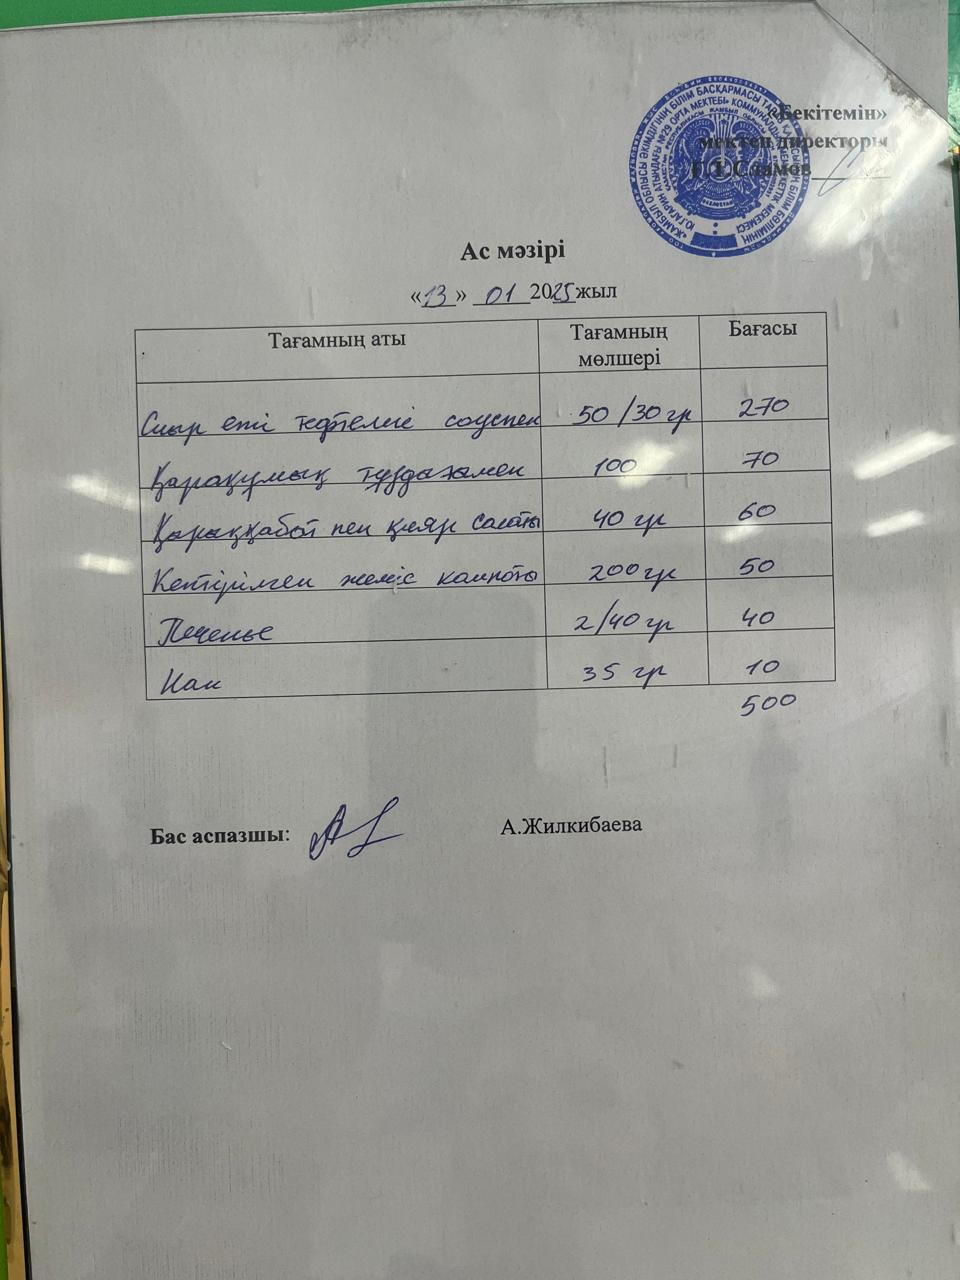 «Бекітемін»
мектеп директоры
Ас мәзірі
«13» 01 2025 жыл
Тағамның аты Тағамның мөлшері Бағасы
Сиыр еті тефтелиі соуспен 50/30 гр 270
Қарақұмық тұздағымен 100 70
Қырыққабат пен қияр салаты 40 гр 60
Кептірілген жеміс компоты 200 гр 50
Печенье 2/40 гр 40
Нан 35 гр 10
500
Бас аспазшы: А.Жилкибаева